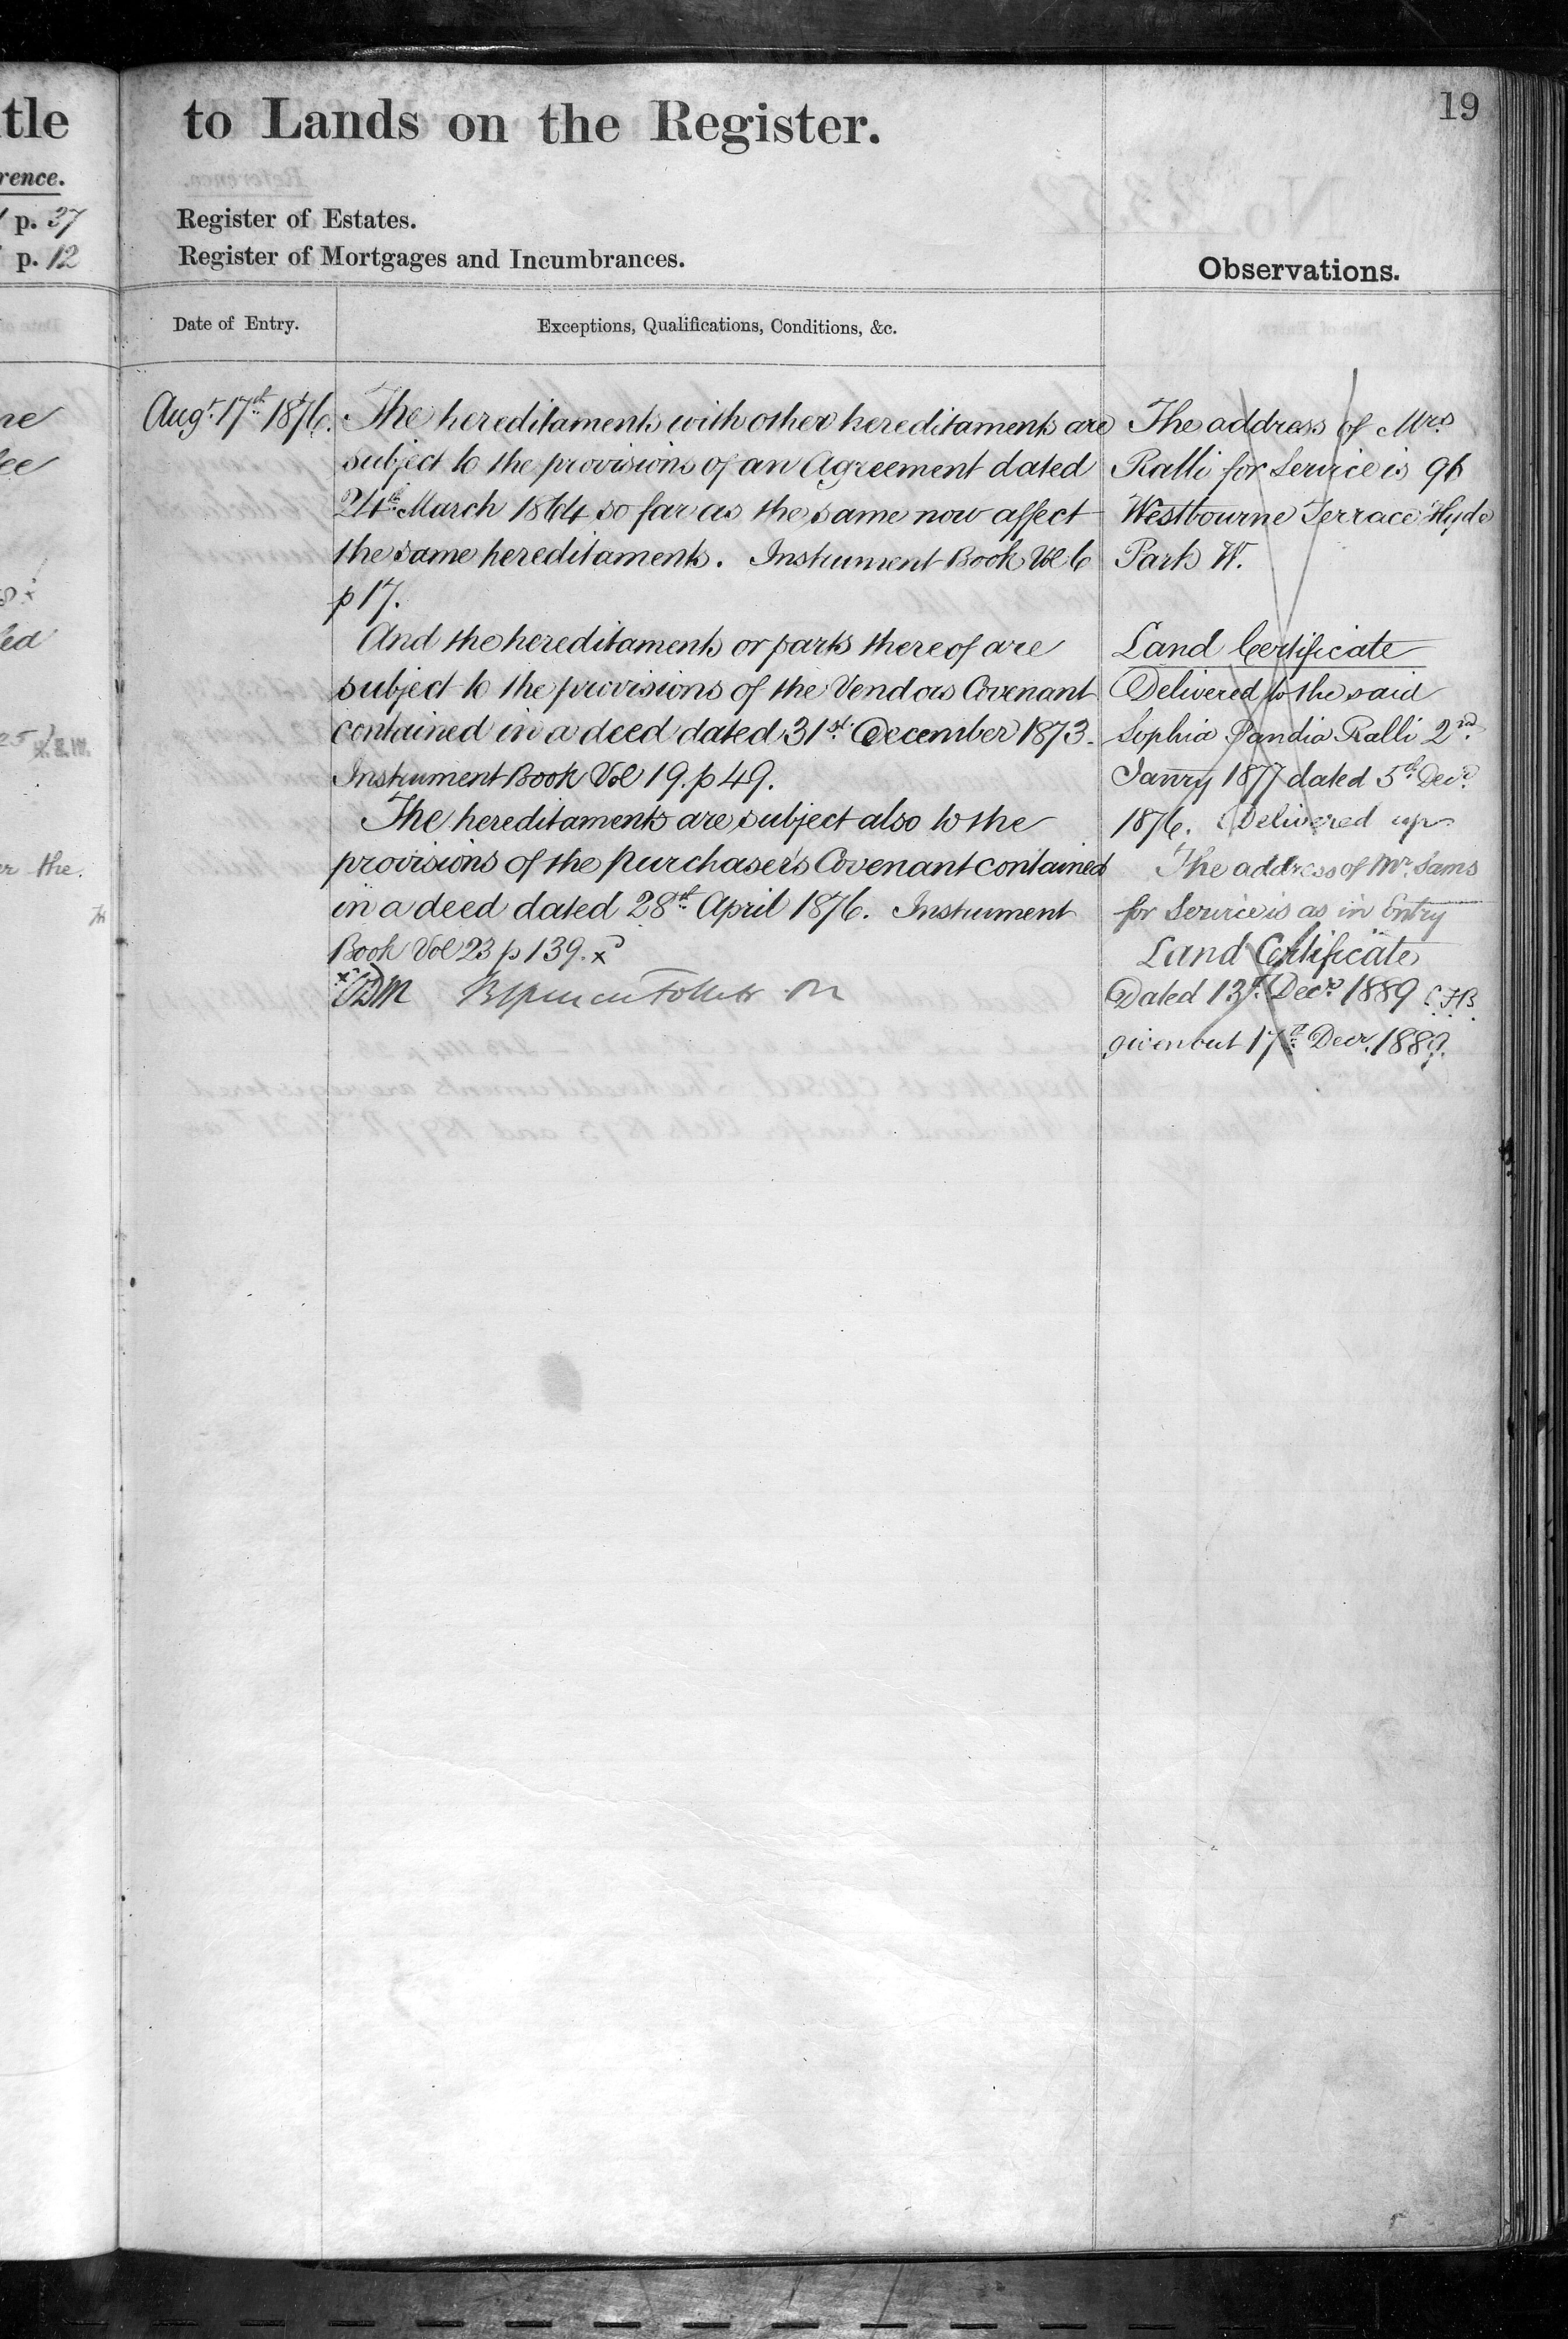 tle
rence.
p. 37
p. 12
to Lands on the Register.
19
Register of Estates.
Register of Mortgages and Incumbrances.
Observations.
Date of Entry.
Exceptions, Qualifications, Conditions, &c.
Augt. 17th 1876.
The hereditaments with other hereditaments are
subject to the provisions of an Agreement dated
24th March 1864 so far as the same now affect
the same hereditaments. Instrument Book Vol 6
p 17.
And the hereditaments or parts thereof are
subject to the provisions of the Vendors Covenant
contained in a deed dated 31st December 1873.
Instrument Book Vol 19. p 49.
The hereditaments are subject also to the
provisions of the purchaser's Covenant contained
in a deed dated 28th April 1876. Instrument
Book Vol 23 p 139. x
The address of Mrs
Ralli for Service is 96
Westbourne Terrace Hyde
Park W.
Land Certificate
Delivered to the said
Sophia Pandia Ralli 2nd
Janry 1877 dated 5th Decr
1876. Delivered up
The address of Mr. Sams
for Service is as in Entry
Land Certificate
Dated 13th Decr 1889 C.F.B.
given out 17th Decr. 1889.
ee
ed
r the.